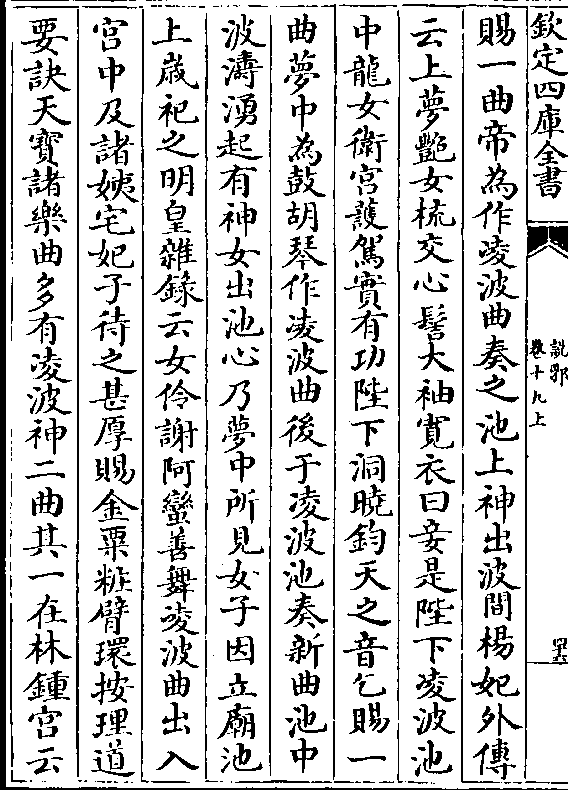 欽定四庫全書
說郛
卷十九上
罢
賜一曲帝為作凌波曲奏之池上神出波間楊妃外傳
云上夢艷女梳交心髻大袖寛衣曰妾是陛下凌波池
中龍女衛宮護駕實有功陛下洞曉鈞天之音乞賜一
曲夢中為鼓胡琴作凌波曲後于凌波池奏新曲池中
波濤湧起有神女出池心乃夢中所見女子因立廟池
上歳祀之明皇雜錄云女伶謝阿蠻善舞凌波曲出入
宮中及諸姨宅妃子待之甚厚賜金粟粧臂環按理道
要訣天寶諸樂曲多有凌波神二曲其一在林鍾宮云